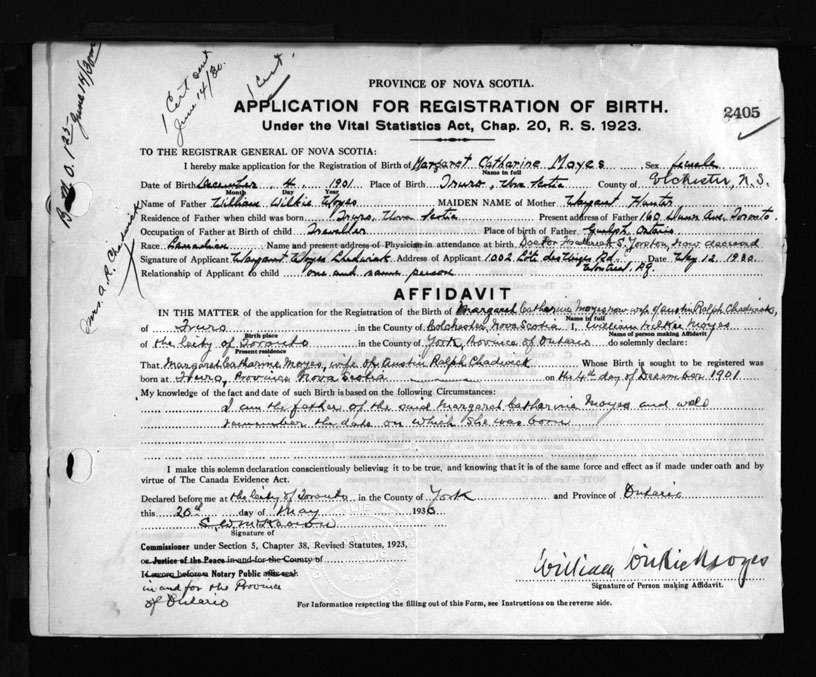 1 Cert sent
June 14/30.
1 Cert.
June 14/30
Mrs. A. R. Chadwick
PROVINCE OF NOVA SCOTIA.
APPLICATION FOR REGISTRATION OF BIRTH.
2405
Under the Vital Statistics Act, Chap. 20, R. S. 1923.
TO THE REGISTRAR GENERAL OF NOVA SCOTIA:
I hereby make application for the Registration of Birth of Margaret Catharine Moyes Sex female
Name in full
Date of Birth December 4 1901 Place of Birth Truro, Nova Scotia County of Colchester, N.S.
Month Day Year
Name of Father William Wilkie Moyes MAIDEN NAME of Mother Margaret Hunter
Residence of Father when child was born Truro, Nova Scotia Present address of Father 160 Ave, Toronto
Occupation of Father at Birth of child Traveller Place of birth of Father Guelph, Ontario
Race Canadian Name and present address of Physician in attendance at birth Doctor S. Yorston, now deceased
Signature of Applicant Margaret Moyes Chadwick Address of Applicant 1002 Côte des Neiges Rd. Date May 12, 1930
Montreal, P.Q.
Relationship of Applicant to child one and same person
AFFIDAVIT
IN THE MATTER of the application for the Registration of the Birth of Margaret Catharine Moyes now wife of Austin Ralph Chadwick,
Name in full
of Truro in the County of Colchester, Nova Scotia I, William Wilkie Moyes
Birth place Name of person making Affidavit
of the City of Toronto in the County of York, Province of Ontario do solemnly declare:
Present residence
That Margaret Catharine Moyes, wife of Austin Ralph Chadwick Whose Birth is sought to be registered was
born at Truro, Province Nova Scotia on the 4th day of December 1901
My knowledge of the fact and date of such Birth is based on the following Circumstances:
I am the father of the said Margaret Catharine Moyes and well
remember the date on which she was born
I make this solemn declaration conscientiously believing it to be true, and knowing that it is of the same force and effect as if made under oath and by
virtue of The Canada Evidence Act.
Declared before me at the City of Toronto in the County of York and Province of Ontario
this 20th day of May 1930
Signature of
Commissioner under Section 5, Chapter 38, Revised Statutes, 1923,
or Justice of the Peace in and for the County of
If sworn before a Notary Public affix seal
in and for the Province
of Ontario
William Wilkie Moyes
Signature of Person making Affidavit.
For Information respecting the filling out of this Form, see Instructions on the reverse side.